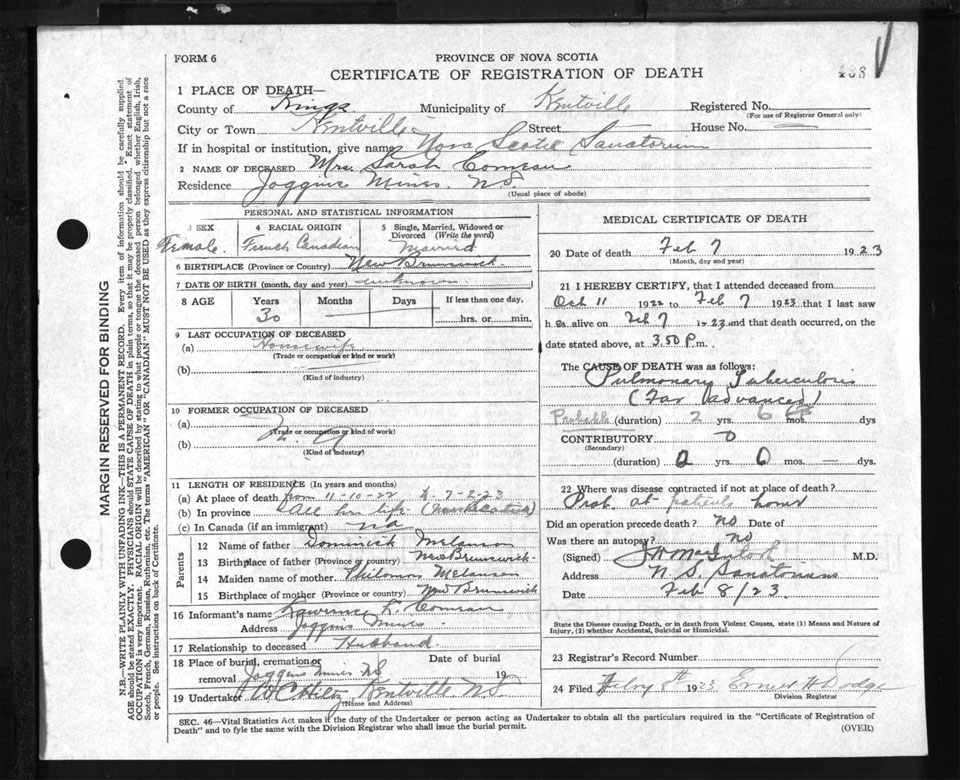 FORM 6
PROVINCE OF NOVA SCOTIA
CERTIFICATE OF REGISTRATION OF DEATH
1 PLACE OF DEATH—
County of Kings Municipality of Kentville Registered No.
(For use of Registrar General only)
City or Town Kentville Street House No.
If in hospital or institution, give name Nova Scotia Sanatorium
2 NAME OF DECEASED Mrs Sarah Comeau
Residence Joggins Mines. N.S.
(Usual place of abode)
MARGIN RESERVED FOR BINDING
N.B.—WRITE PLAINLY WITH UNFADING INK—THIS IS A PERMANENT RECORD. Every item of information should be carefully supplied.
AGE should be stated EXACTLY. PHYSICIANS should STATE CAUSE OF DEATH in plain terms, so that it may be properly classified. Exact statement of
OCCUPATION is very important. RACIAL ORIGIN will be described by stating to what people or tongue the deceased person belonged whether English, Irish,
Scotch, French, German, Russian, Ruthenian, etc. The terms "AMERICAN" OR "CANADIAN" MUST NOT BE USED as they express citizenship but not a race
or people. See instructions on back of Certificate.
PERSONAL AND STATISTICAL INFORMATION
3 SEX
Female.
4 RACIAL ORIGIN
French Canadian
5 Single, Married, Widowed or
Divorced (Write the word)
Married
6 BIRTHPLACE (Province or Country) New Brunswick.
7 DATE OF BIRTH (month, day and year) unknown
8 AGE Years Months Days If less than one day,
30 — — hrs. or min.
9 LAST OCCUPATION OF DECEASED
(a) Housewife
(Trade or occupation or kind or work)
(b)
(Kind of industry)
10 FORMER OCCUPATION OF DECEASED
(a)
(Trade or occupation or kind of work)
(b)
(Kind of industry)
11 LENGTH OF RESIDENCE (In years and months)
(a) At place of death from 11-10-22 to 7-2-23
(b) In province All her life (Nova Scotia)
(c) In Canada (if an immigrant) na
Parents
12 Name of father Dominick Melanson
13 Birthplace of father (Province or country) New Brunswick
14 Maiden name of mother Melanson
15 Birthplace of mother (Province or country) New Brunswick
16 Informant's name Lawrence Comeau
Address Joggins Mines
17 Relationship to deceased Husband
18 Place of burial, cremation or Date of burial
removal Joggins Mines NS 19
19 Undertaker W C Hiltz Kentville NS
(Name and Address)
MEDICAL CERTIFICATE OF DEATH
20 Date of death Feb 7 1923
(Month, day and year)
21 I HEREBY CERTIFY, that I attended deceased from
Oct 11 1922 to Feb 7 1923 that I last saw
h er alive on Feb 7 1923 and that death occurred, on the
date stated above, at 3.50 P.m.
The CAUSE OF DEATH was as follows:
Pulmonary Tuberculosis
(Far Advanced)
Probable (duration) 2 yrs. 6 mos. dys
CONTRIBUTORY 0
(Secondary)
(duration) 0 yrs. 0 mos. — dys.
22 Where was disease contracted if not at place of death?
Prob. at patients home
Did an operation precede death? no Date of
Was there an autopsy? no
(Signed) M.D.
Address N. S. Sanatorium
Date Feb 8/23.
State the Disease causing Death, or in death from Violent Causes, state (1) Means and Nature of
Injury, (2) whether Accidental, Suicidal or Homicidal.
23 Registrar's Record Number
24 Filed Febry 8th 1923 Ernest H Dodge
Division Registrar
SEC. 46—Vital Statistics Act makes it the duty of the Undertaker or person acting as Undertaker to obtain all the particulars required in the "Certificate of Registration of
Death" and to fyle the same with the Division Registrar who shall issue the burial permit.
(OVER)